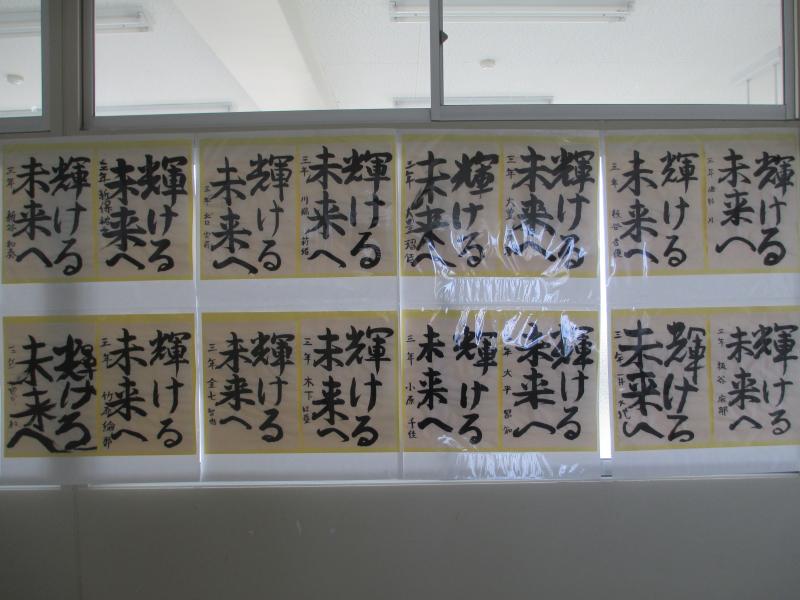 輝ける
未来へ
三年
輝ける
未来へ
三年 板谷
輝ける
未来へ
三年
輝ける
未来へ
三年
輝ける
未来へ
三年 川
輝ける
未来へ
三年 北口
輝ける
未来へ
三年 新保
輝ける
未来へ
三年 板谷 和奏
輝ける
未来へ
三年 板谷
輝ける
未来へ
三年 井 大地
輝ける
未来へ
三年 大平
輝ける
未来へ
三年 小原 千佳
輝ける
未来へ
三年 木下
輝ける
未来へ
三年 金七 智也
輝ける
未来へ
三年 竹
輝ける
未来へ